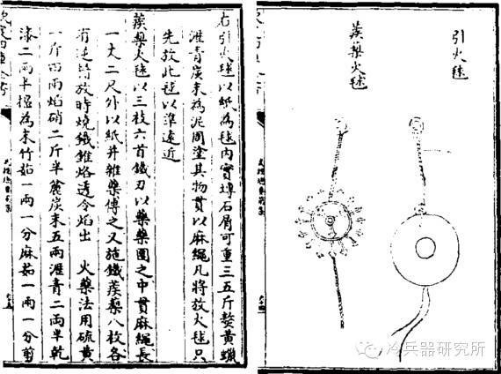 引火毬
蒺藜火毬
右引火毬以紙為毬內實塼石屑可重三五斤熬黄蠟
瀝青炭末為泥周塗其物貫以麻繩凡將放火毬只
先放此毬以準遠近
蒺藜火毬以三枝六首鐵刃以藥藥團之中貫麻繩長
一丈二尺外以紙并雜藥傅之又施鐵蒺藜八枚各
有逆鬚放時燒鐵錐烙透令焰出 火藥法用硫黄
一斤四兩焰硝二斤半麄炭末五兩瀝青二兩半乾
漆二兩半擣為末竹茹一兩一分麻茹一兩一分剪
冷兵器研究所